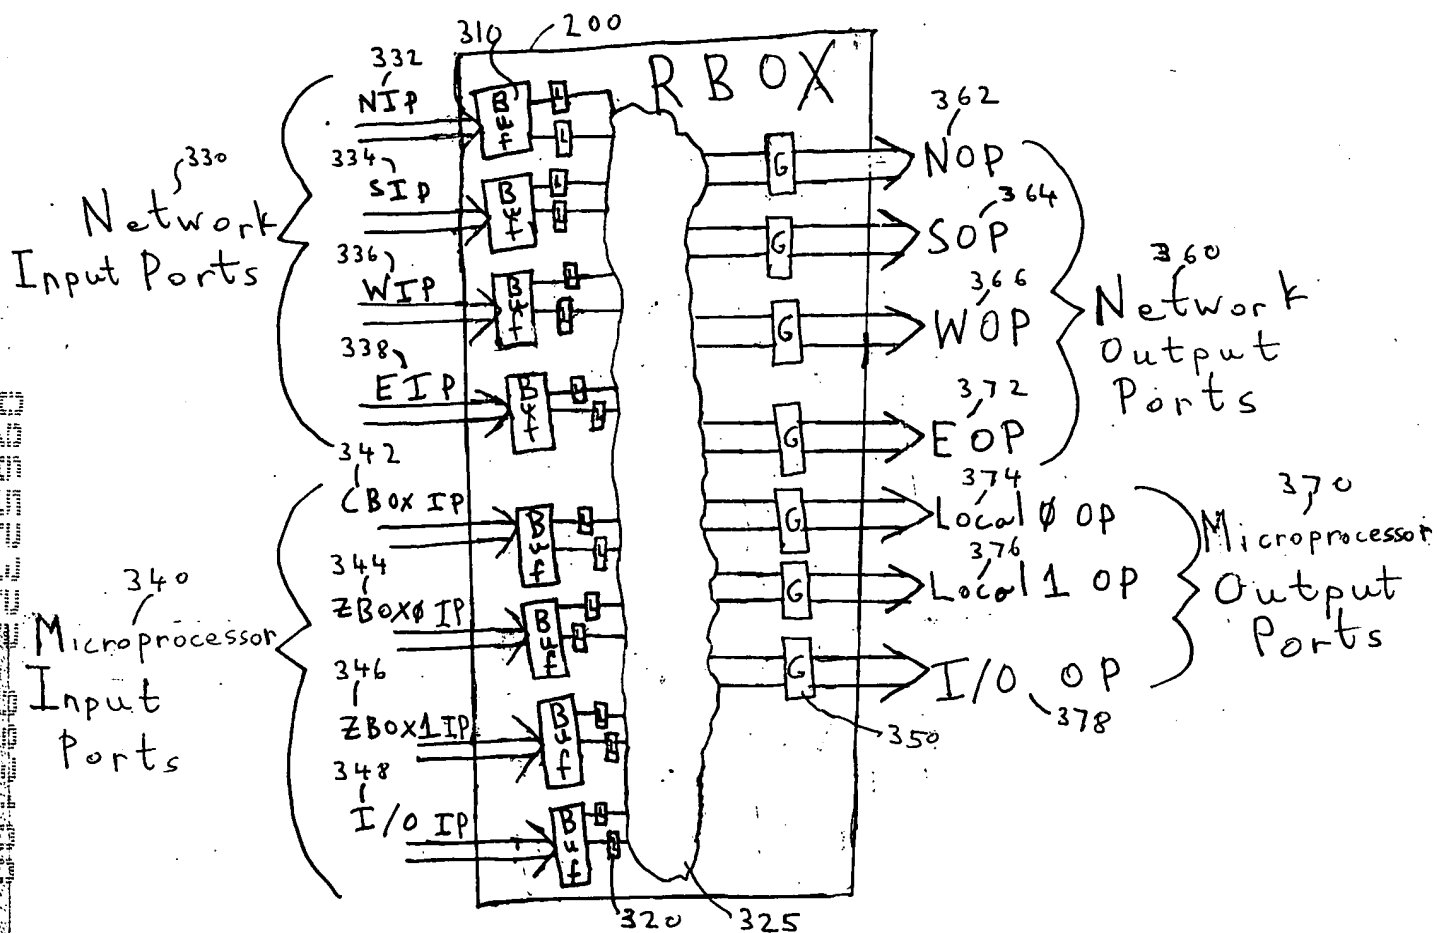 310
200
R BOX
332
NIP
Buff
L
L
334
SIP
Buf
L
L
330
Network
Input Ports
336
WIP
Buf
L
L
338
EIP
Buf
L
L
342
CBOX IP
Buf
L
L
344
ZBOXØ IP
Buf
L
L
340
Microprocessor
Input
Ports
346
ZBOX1 IP
Buf
L
L
348
I/O IP
Buf
L
L
320
325
G
362
NOP
G
364
SOP
G
366
WOP
360
Network
Output
Ports
G
372
EOP
G
374
Local Ø OP
G
376
Local 1 OP
370
Microprocessor
Output
Ports
G
350
I/O OP
378